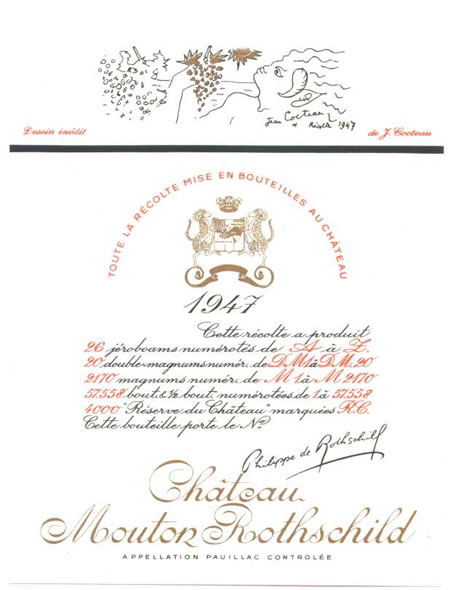 Jean Cocteau
* 1947
Dessin inédit
de J. Cocteau
TOUTE LA RÉCOLTE MISE EN BOUTEILLES AU CHÂTEAU
1947
Cette récolte a produit
26 jéroboams numérotés de A à Z
20 double-magnums numér. de D.M.1 à D.M. 20
2170 magnums numér. de M 1 à M 2170
57.558 bout. & ½ bout. numérotées de 1 à 57.558
4000 "Réserve du Château" marquées R.C.
Cette bouteille porte le Nº
Philippe de Rothschild
Château
Mouton Rothschild
APPELLATION PAUILLAC CONTRÔLÉE